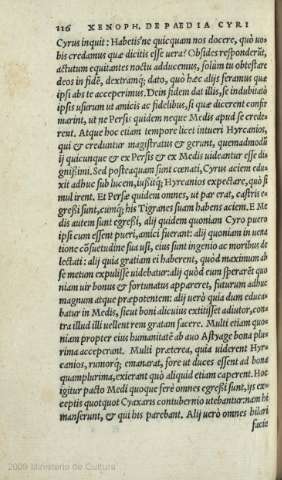 226 XENOPH. DE PÆDIA CYRI
Cyrus inquit: Habetis'ne quicquam nos docere, quò uo-
bis credamus quæ dicitis esse uera? Obsides responderũt,
actutum equitantes noctu adducemus, solùm tu obtestare
deos in fidẽ, dextramq́; dato, quò hæc alijs feramus quæ
ipsi abs te acceperimus. Dein fidem dat illis, se indubitatò
ipsis usurum ut amicis ac fidelibus, si quæ dicerent confir
marint, ut ne Persis quidem neque Medis apud se crede-
rent. Atque hoc etiam tempore licet intueri Hyrcanios,
qui & creduntur magistratus & gerunt, quemadmodũ
ij quicunque & ex Persis & ex Medis uidentur esse di-
gnißimi. Sed posteaquam sunt cœnati, Cyrus aciem edu-
xit adhuc sub lucem, iußitq́; Hyrcanios expectare, quò si
mul irent. Et Persæ quidem omnes, ut par erat, castris e-
greßi sunt, cumq́; his Tigranes suam habens aciem. E Me
dis autem sunt egreßi, alij quidem quoniam Cyro puero
ipsi cum essent pueri, amici fuerant: alij quoniam in uena
tione cõsuetudine sua usi, eius sunt ingenio ac moribus de
lectati: alij quia gratiam ei haberent, quòd maximum ab
se metum expulisse uidebatur: alij quòd cum sperarẽt quo
niam uir bonus & fortunatus appareret, futurum adhuc
magnum atque præpotentem: alij uerò quia dum educa-
batur in Medis, sicut boni alicuius extitisset adiutor, con-
tra illud illi uellent rem gratam facere. Multi etiam quo-
niam propter eius humanitatẽ ab auo Astyage bona plu-
rima acceperant. Multi præterea, quia uiderent Hyr-
canios, rumorq́; emanarat, fore ut duces essent ad bona
quamplurima, exierant quò aliquid etiam caperent. Hoc
igitur pacto Medi quoque ferè omnes egreßi sunt, ijs ex-
ceptis quotquot Cyaxaris contubernio utebantur: nam hi
manserunt, & qui his parebant. Alij uerò omnes hilari
facie
2009 Ministerio de Cultura